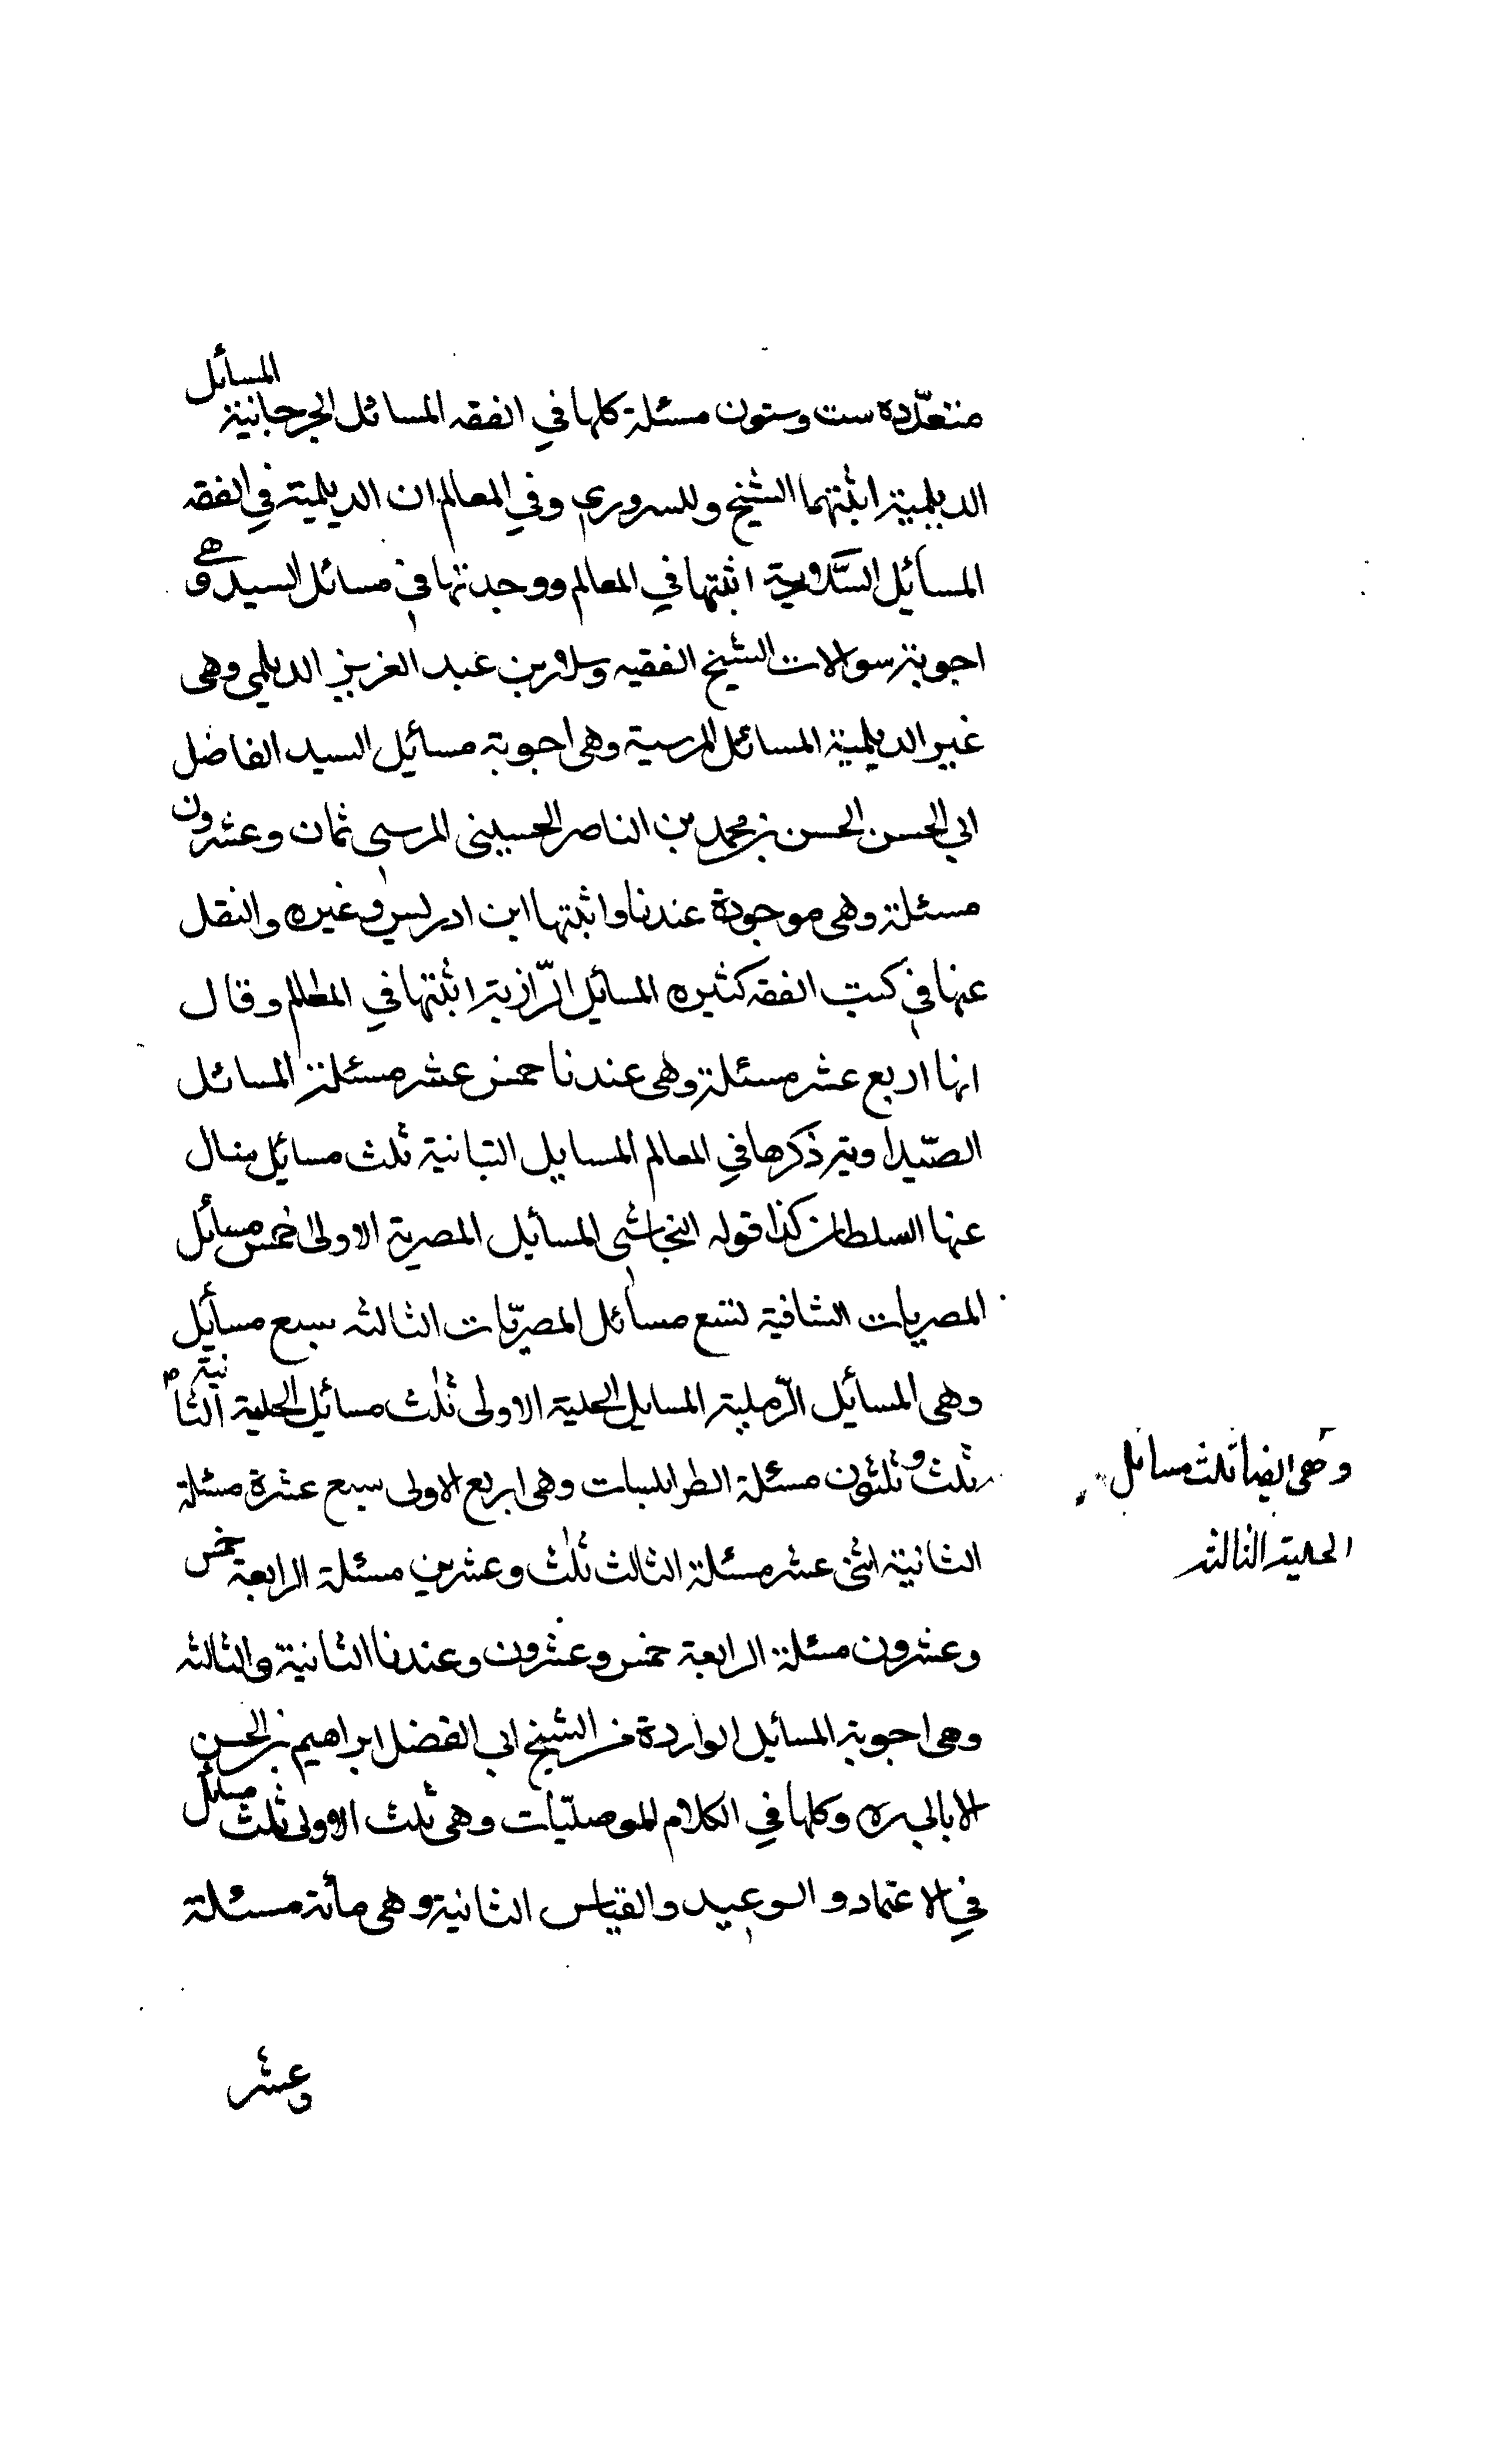 متعدّده ست وستون مسئلة كلها في الفقه المسائل الجرجانية المسائل
الديلمية اثبتهما الشيخ وللسروري وفي المعالم ان الديلمية في الفقه
المسائيل السَّلارية اثبتها في المعالم ووجدتها في مسائل السيد وهي
اجوبة سوالات الشيخ الفقيه وسلار بن عبد العزيز الديلمي وهى
غير الديلمية المسائل المرسية وهى اجوبة مسائيل السيد الفاضل
ابي الحسن الحسن بن محمد بن الناصر الحسيني المرسي ثمان وعشرون
مسئلة وهى موجودة عندنا واثبتها ابن ادريس وغيره والنقل
عنها في كتب الفقه كثيره المسائيل الرّازية اثبتها في المطالم وقال
انها اربع عشر مسئلة وهى عندنا خمس عشر مسئلة المسائل
الصّيداوية ذكرها في المعالم المسايل التبانية ثلث مسائيل سال
عنها السلطان كذا قوله النجاشى المسائيل المصرية الاولى خمس مسائل
المصريات الثانية تسع مسائل المصريّات الثالثه سبع مسايل
وهى المسائيل الرّملية المسايل الحلية الاولى ثلث مسائيل الحلية الثانية
وهى ايضا ثلث مسائل
الحلية الثالثه
ثلث وثلثون مسئلة الطرابلسيات وهى اربع الاولى سبع عشرة مسئلة
الثانية اثنى عشر مسئلة الثالث ثلث وعشرين مسئلة الرابعة خمس
وعشرون مسئلة الرابعة خمس وعشرون وعندنا الثانية والثالثه
وهى اجوبة المسائيل الواردة من الشيخ ابى الفضل ابراهيم بن الحسن
وكلها في الكلام الموصليّات وهى ثلث الاولى ثلث مسائل
في الاعتماد والوعيد والقياس الثانية وهى مأئة مسئلة
وعشر